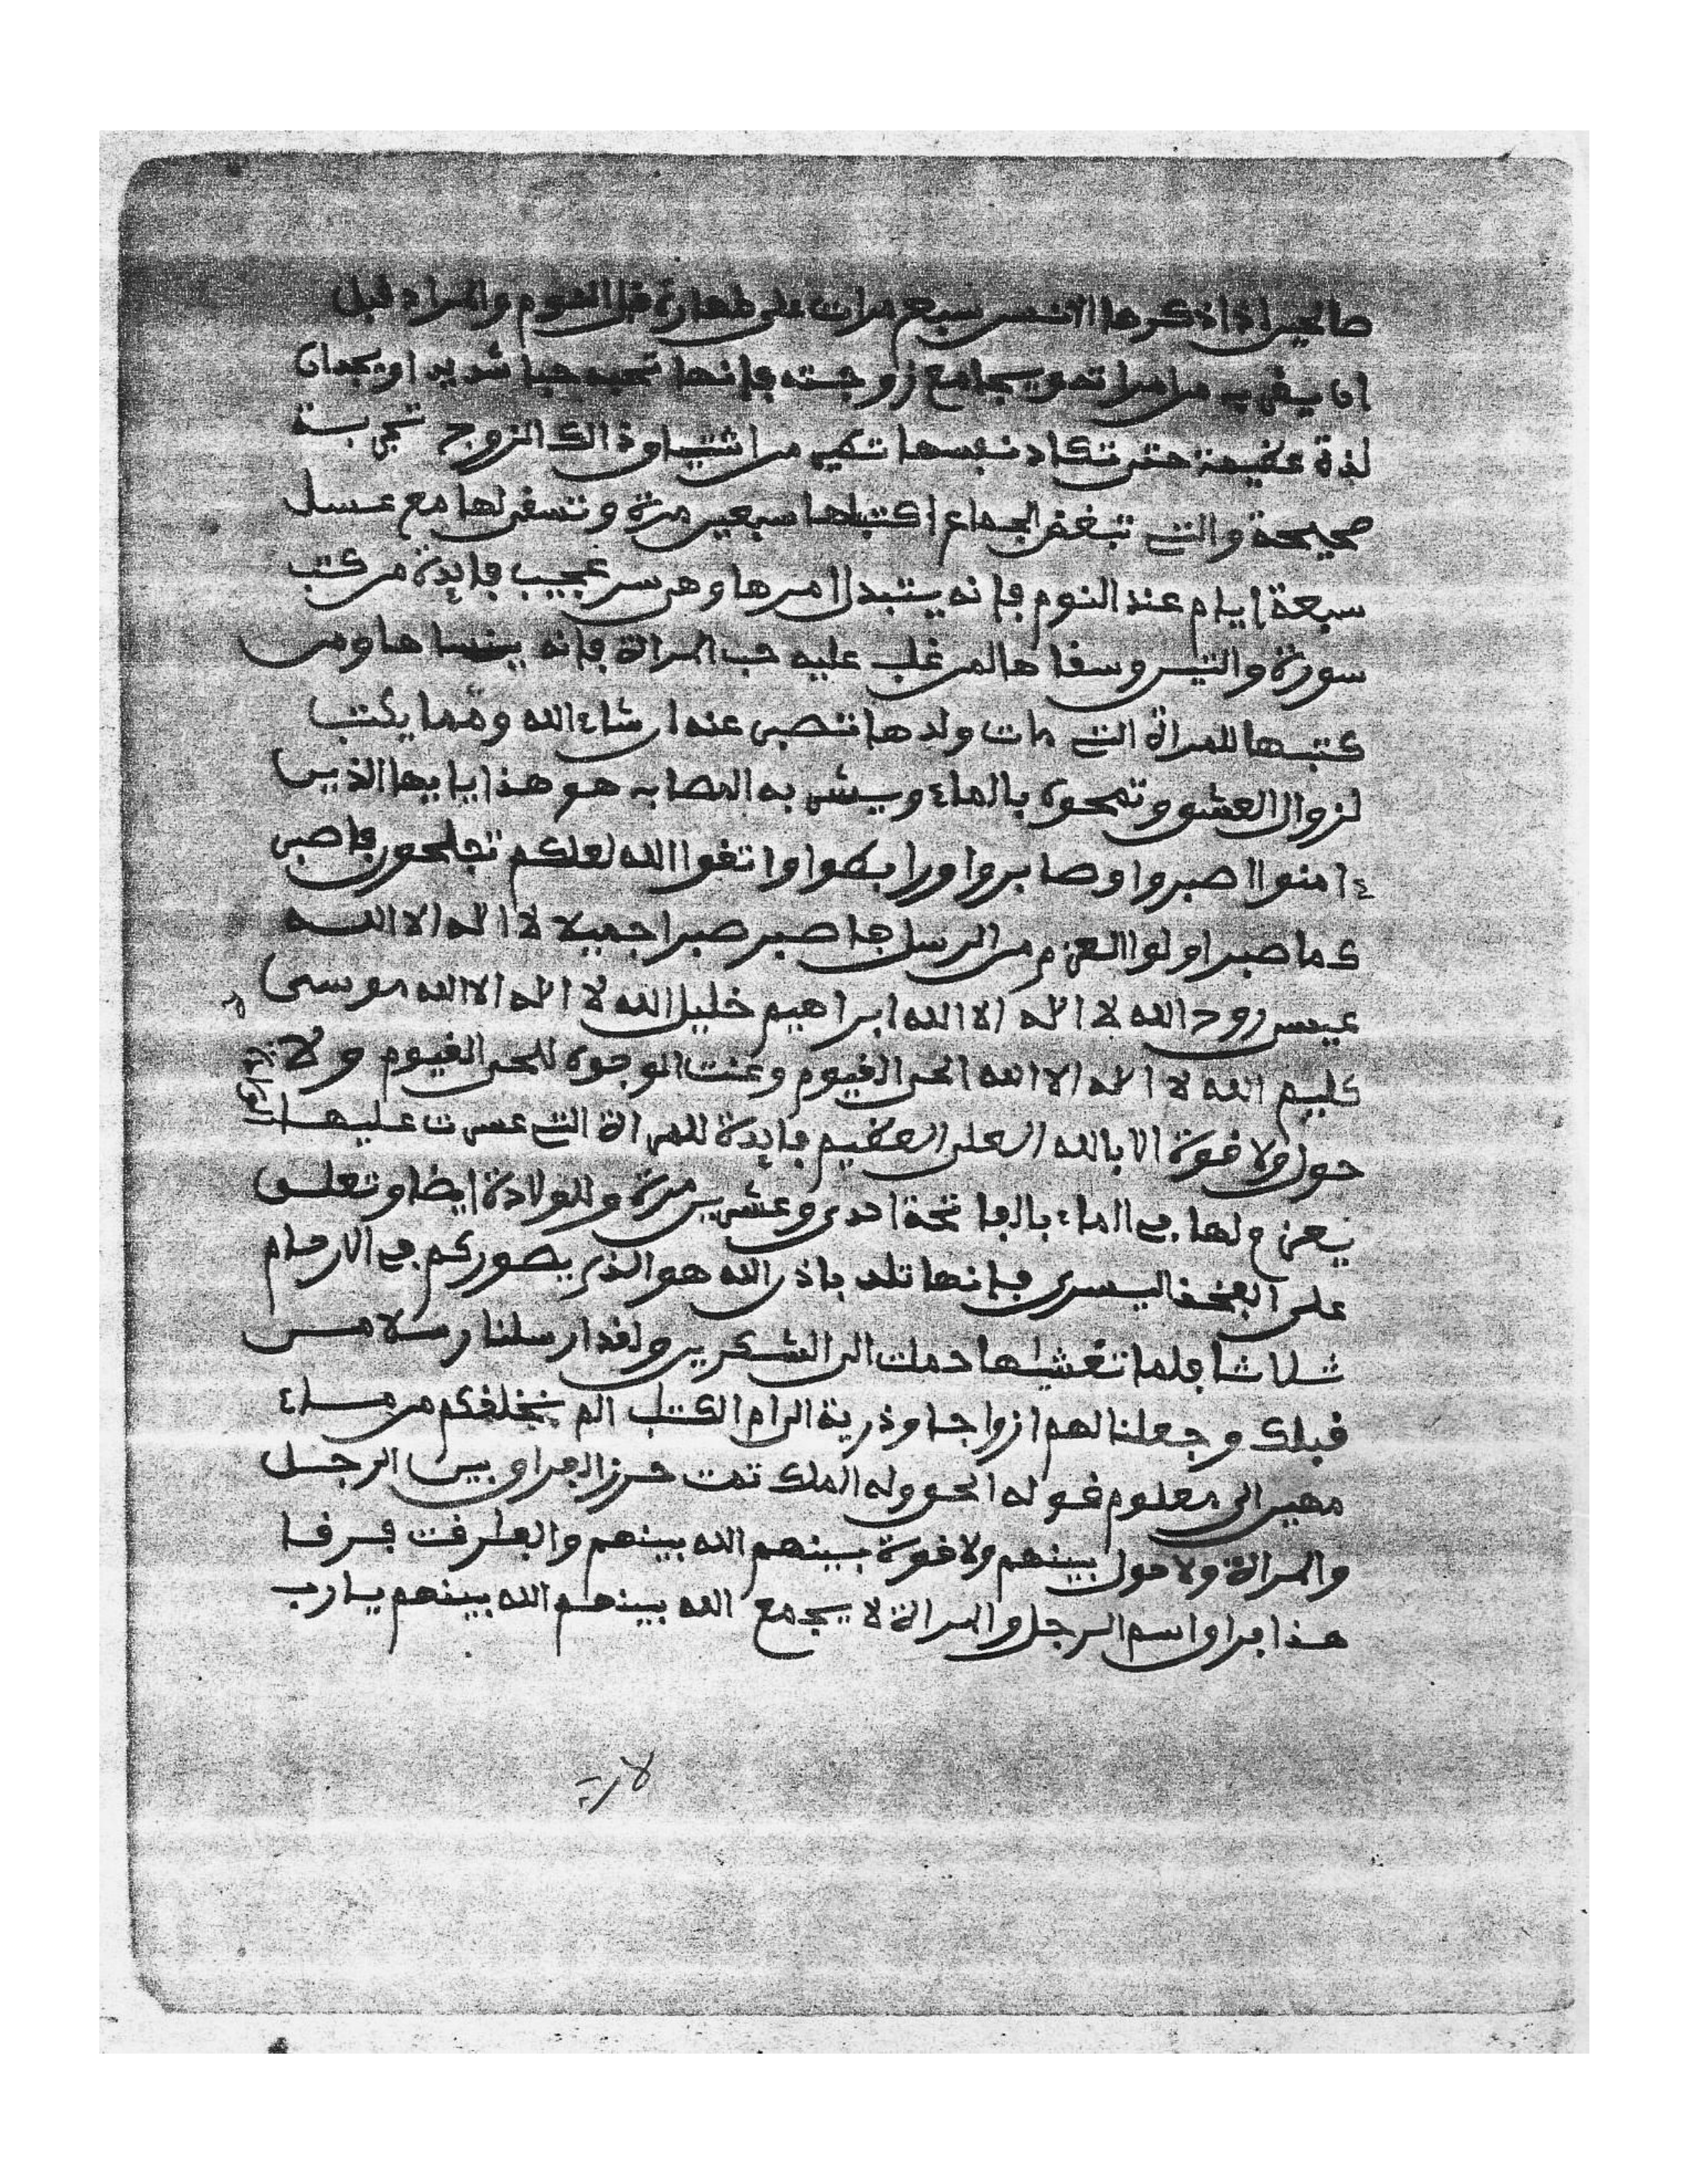 صالحين اذا ذكرها الانسن سبع مرات على طهارة قبل النوم والمراد قبل
ان يقرب من امراته ويجامع زوجته فإنها تحبه حبا شديدا ويجدان
لذة عظيمة حتى تكاد نفسها تطير من اشتياق ذالك الزوج تجربة
صحيحة والتي تبغض الجماع اكتبلها سبعين مرة وتسقى لها مع عسل
سبعة ايام عند النوم فإنه يتبدل امرها وهي سر عجيب فايدة من كتب
سورة والتين وسقاها لمن غلب عليه حب المراة فإنه ينساها ومن
كتبها للمراة التي مات ولدها تنصبر عنه ان شاء الله ومما يكتب
لزوال العشق وتمحوه بالماء ويشربه المصاب به هو هذا يايها الذين
ءامنوا اصبروا وصابروا ورابطوا واتقوا الله لعلكم تفلحون فاصبر
كما صبر اولوا العزم من الرسل فاصبر صبرا جميلا لا اله الا اللــه
عيسى روح الله لا اله الا الله ابراهيم خليل الله لا اله الا الله موسى
كليم الله لا اله الا الله الحي القيوم وعنت الوجوه للحي القيوم ولا
حول ولا قوة الا بالله العلي العظيم فايدة للمراة التي عسرت عليها
يعزم لها في الماء بالفاتحة احدى وعشرين مرة وللولادة ايضا وتعلق
على الفخذ اليسرى فإنها تلد باذن الله هو الذي يصوركم في الارحام
ثلاثا فلما تغشيها حملت الى الشكرين ولقد ارسلنا رسلا من
قبلك وجعلنا لهم ازواجا وذرية الى ام الكتب الم نخلقكم من مــاء
مهين الى معلوم قوله الحق وله الملك تمت حرز الفراق بين الرجــل
والمراة ولا حول بينهم ولا قوة بينهم الله بينهم والفارقت فرقا
هذا فراق اسم الرجل والمراة لا يجمع الله بينهم الله بينهم يا رب